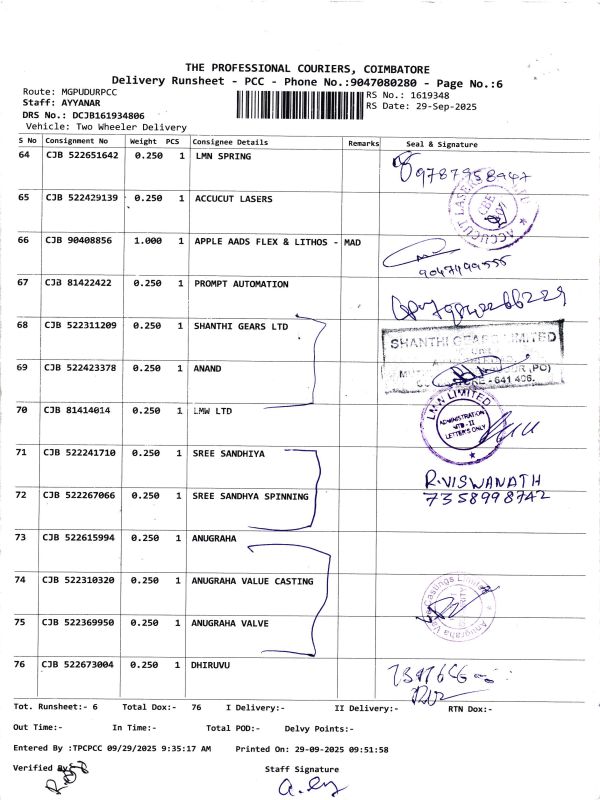 THE PROFESSIONAL COURIERS, COIMBATORE
Delivery Runsheet - PCC - Phone No.:9047080280 - Page No.:6
Route: MGPUDURPCC
RS No.: 1619348
Staff: AYYANAR
RS Date: 29-Sep-2025
DRS No.: DCJB161934806
Vehicle: Two Wheeler Delivery
S No Consignment No Weight PCS Consignee Details Remarks Seal & Signature
64 CJB 522651642 0.250 1 LMN SPRING
9787958947
65 CJB 522429139 0.250 1 ACCUCUT LASERS
ACCUCUT LASERS
CBE
66 CJB 90408856 1.000 1 APPLE AADS FLEX & LITHOS - MAD
9047499555
67 CJB 81422422 0.250 1 PROMPT AUTOMATION
68 CJB 522311209 0.250 1 SHANTHI GEARS LTD
SHANTHI GEARS LIMITED
69 CJB 522423378 0.250 1 ANAND
(PO)
- 641 406.
70 CJB 81414014 0.250 1 LMW LTD
LMW LIMITED
ADMINISTRATION
MTD - II
LETTER'S ONLY
71 CJB 522241710 0.250 1 SREE SANDHIYA
R.VISWANATH
72 CJB 522267066 0.250 1 SREE SANDHYA SPINNING
7358998742
73 CJB 522615994 0.250 1 ANUGRAHA
74 CJB 522310320 0.250 1 ANUGRAHA VALUE CASTING
Anugraha Valve Castings Limited
75 CJB 522369950 0.250 1 ANUGRAHA VALVE
76 CJB 522673004 0.250 1 DHIRUVU
Tot. Runsheet:- 6 Total Dox:- 76 I Delivery:- II Delivery:- RTN Dox:-
Out Time:- In Time:- Total POD:- Delvy Points:-
Entered By :TPCPCC 09/29/2025 9:35:17 AM Printed On: 29-09-2025 09:51:58
Verified By:-
Staff Signature